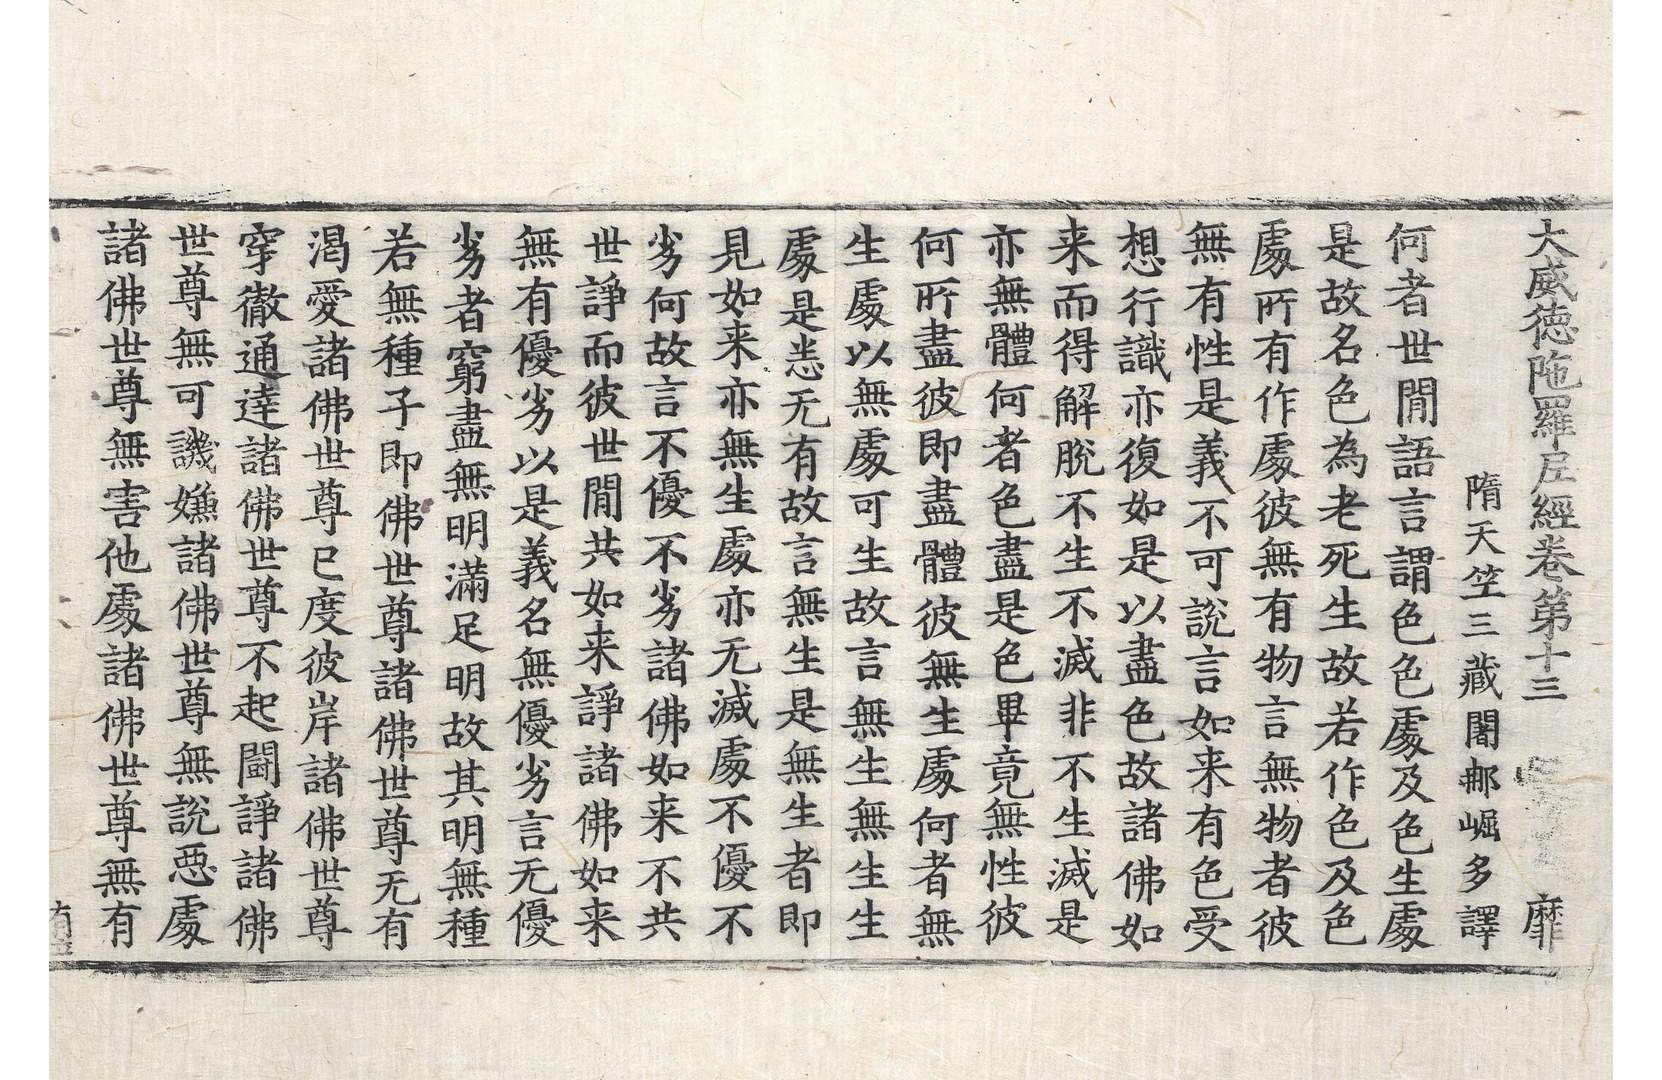 大威徳陁羅尼經卷第十三 靡
隋天笠三藏闍𨚗崛多譯
何者世閒語言謂色色處及色生處
是故名色為老死生故若作色及色
處所有作處彼無有物言無物者彼
無有性是義不可說言如来有色受
想行識亦復如是以盡色故諸佛如
来而得解脫不生不滅非不生滅是
亦無體何者色盡是色畢竟無性彼
何所盡彼即盡體彼無生處何者無
生處以無處可生故言無生無生生
處是恙无有故言無生是無生者即
見如来亦無生處亦无滅處不優不
劣何故言不優不劣諸佛如来不共
世諍而彼世閒共如来諍諸佛如来
無有優劣以是義名無優劣言无優
劣者窮盡無明滿足明故其明無種
若無種子即佛世尊諸佛世尊无有
渴愛諸佛世尊已度彼岸諸佛世尊
穿徹通達諸佛世尊不起鬪諍諸佛
世尊無可譏嫌諸佛世尊無說惡處
諸佛世尊無害他處諸佛世尊無有